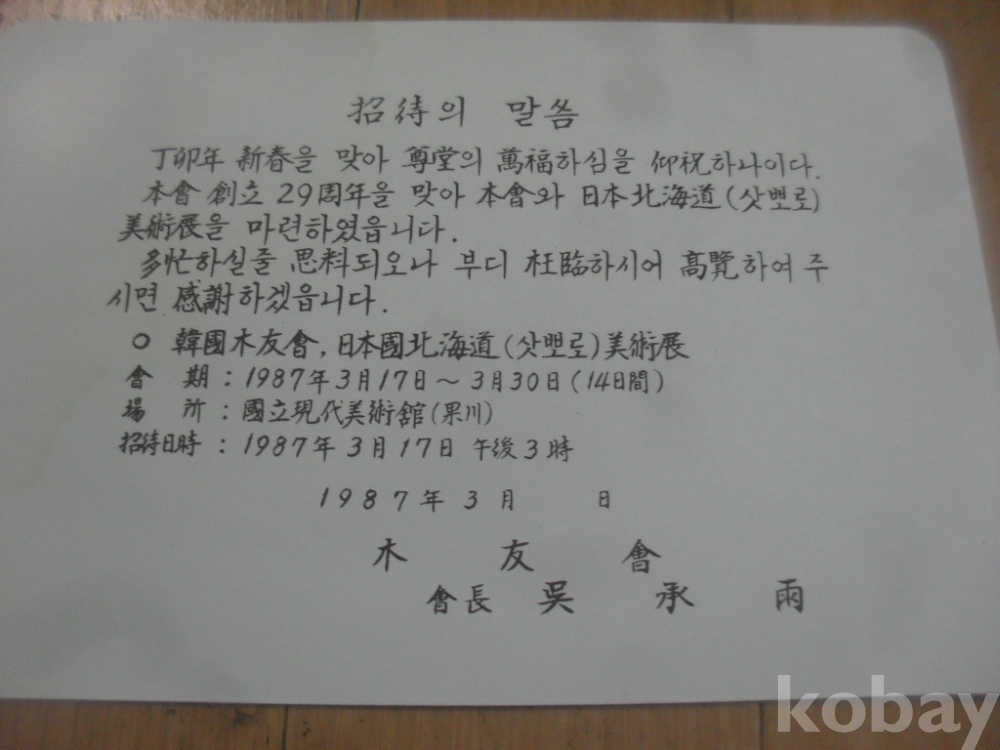 招待의 말씀
丁卯年 新春을 맞아 尊堂의 萬福하심을 仰祝하나이다.
本會 創立 29周年을 맞아 本會와 日本北海道(삿뽀로)
美術展을 마련하였읍니다.
多忙하실줄 思料되오나 부디 枉臨하시어 高覽하여 주
시면 感謝하겠읍니다.
○ 韓國木友會, 日本國北海道(삿뽀로)美術展
會 期 : 1987年 3月 17日 ~ 3月 30日 (14日間)
場 所 : 國立現代美術舘(果川)
招待日時 : 1987年 3月 17日 午後 3時
1987年 3月 日
木 友 會
會長 吳 承 雨
kobay